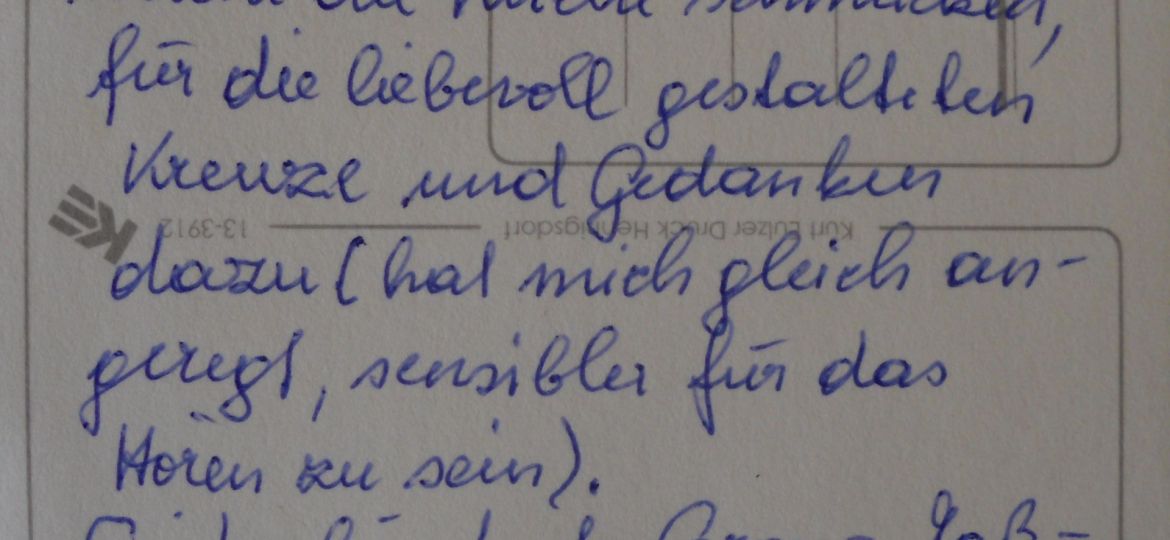 für die liebevoll gestalteten
Kreuze und Gedanken
13-3912 Kurt Eulzer Druck Hennigsdorf
dazu (hat mich gleich an-
geregt, sensibler für das
Hören zu sein).